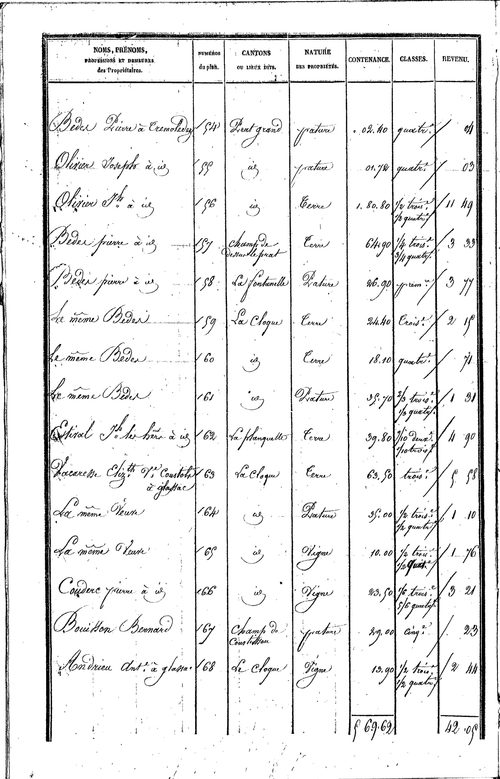 NOMS, PRÉNOMS, PROFESSIONS ET DEMEURES des Propriétaires. NUMÉROS du plan. CANTONS OU LIEUX DITS. NATURE DES PROPRIÉTÉS. CONTENANCE. CLASSES. REVENU.
Bedes Pierre à 154 Prat grand pature 02.40 quatr.e 04
Olivier Joseph à id 155 id pature 01.78 quatr.e 03
Olivier J.ph à id 156 id Terre 1.80.80 1/2 trois.e 1/2 quatr.e 11 49
Bedes pierre à id 157 Champ de dessus le prat Terre 64.90 1/4 trois.e 3/4 quatr.e 3 33
Bedes pierre à id 158 La fontenille Pature 26.90 prem.e 3 77
Le même Bedes 159 La Cloque Terre 24.40 Trois.e 2 15
Le même Bedes 160 id Terre 18.10 quatr.e 71
Le même Bedes 161 id Pature 35.70 trois.e quatr.e 1 31
à id 162 La planquette Terre 39.80 1/2 deux.e 1/2 trois.e 4 90
Eliz.th V.e à glassac 163 La Cloque Terre 63.50 trois.e 5 58
La même Veuve 164 id Pature 35.00 1/2 trois.e 1/2 quatr.e 1 10
La même Veuve 165 id Vigne 10.00 1/2 trois.e 1/2 quat.e 1 76
Couderc pierre à id 166 id Vigne 23.50 1/6 trois.e 5/6 quatr.e 3 21
Bouisson Bernard 167 Champ de pature 29.00 cinq.e 23
Andrieu Ant.e à glassac 168 Le Cloque Vigne 13.90 1/2 trois.e 1/2 quatr.e 2 44
5 69.62 42.05